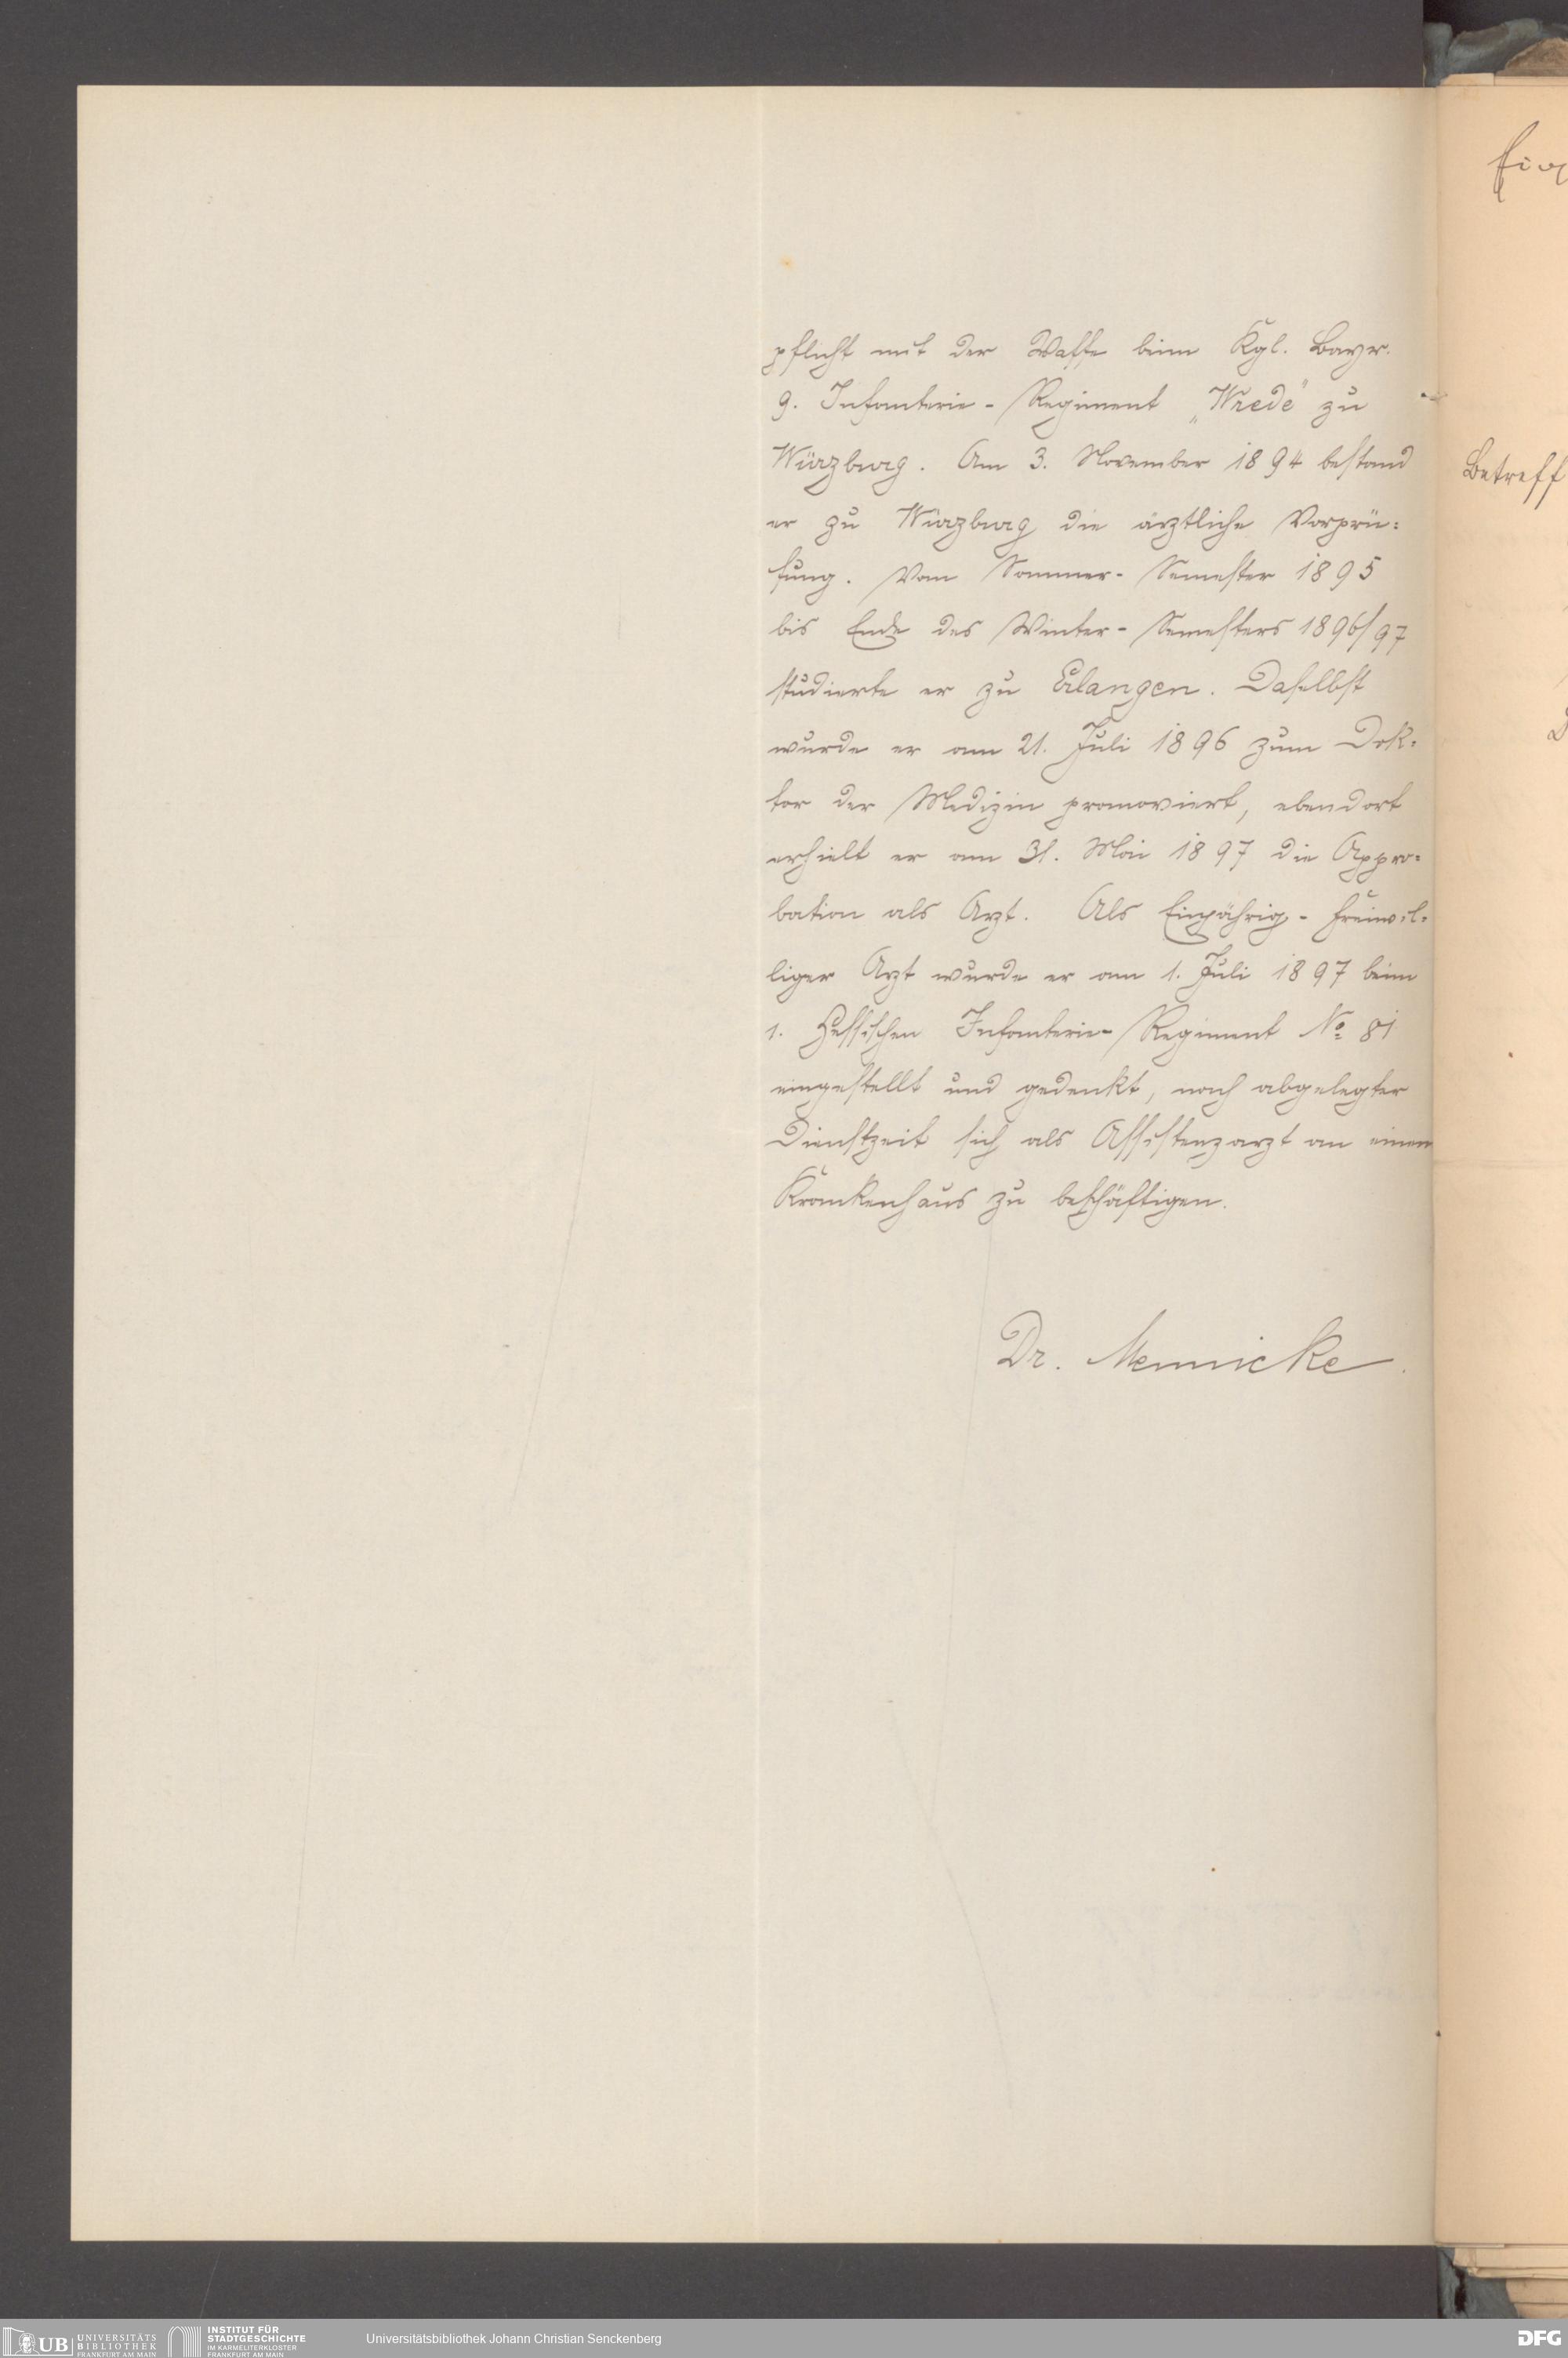 pflicht mit der Waffe beim Kgl. Bayr.
9. Infanterie-Regiment „Wrede" zu
Würzburg. Am 3. November 1894 bestand
er zu Würzburg die ärztliche Vorprü=
fung. Vom Sommer-Semester 1895
bis Ende des Winter-Semesters 1896/97
studierte er zu Erlangen. Daselbst
wurde er am 21. Juli 1896 zum Dok=
tor der Medizin promoviert, ebendort
erhielt er am 31. Mai 1897 die Appro=
bation als Arzt. Als Einjährig-Freiwil=
liger Arzt wurde er am 1. Juli 1897 beim
1. Hessischen Infanterie-Regiment No 81
eingestellt und gedenkt, nach abgelegter
Dienstzeit sich als Assistenzarzt an einem
Krankenhaus zu beschäftigen.
Dr. Mennicke.
Betreff
UB UNIVERSITÄTS
BIBLIOTHEK
FRANKFURT AM MAIN
INSTITUT FÜR
STADTGESCHICHTE
IM KARMELITERKLOSTER
FRANKFURT AM MAIN
Universitätsbibliothek Johann Christian Senckenberg
DFG